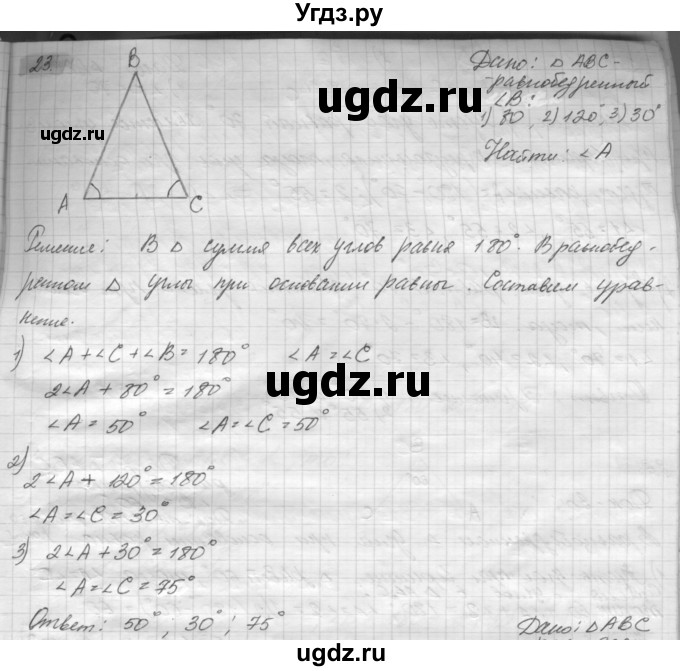 Угдз.ру
23.
B
A
C
Дано: △ ABC -
-равнобедренный
∠B:
1) 80°, 2) 120°, 3) 30°
Найти: ∠A
ugdz.ru
ugdz.ru
Решение: В △ сумма всех углов равна 180°. В равнобед-
ренном △ углы при основании равны. Составим урав-
нение.
1) ∠A + ∠C + ∠B = 180° ∠A = ∠C
2∠A + 80° = 180°
∠A = 50° ∠A = ∠C = 50°
ugdz.ru
2)
2∠A + 120° = 180°
∠A = ∠C = 30°
3) 2∠A + 30° = 180°
∠A = ∠C = 75°
Ответ: 50°; 30°; 75°
Дано: △ABC
ugdz.ru
ugdz.ru